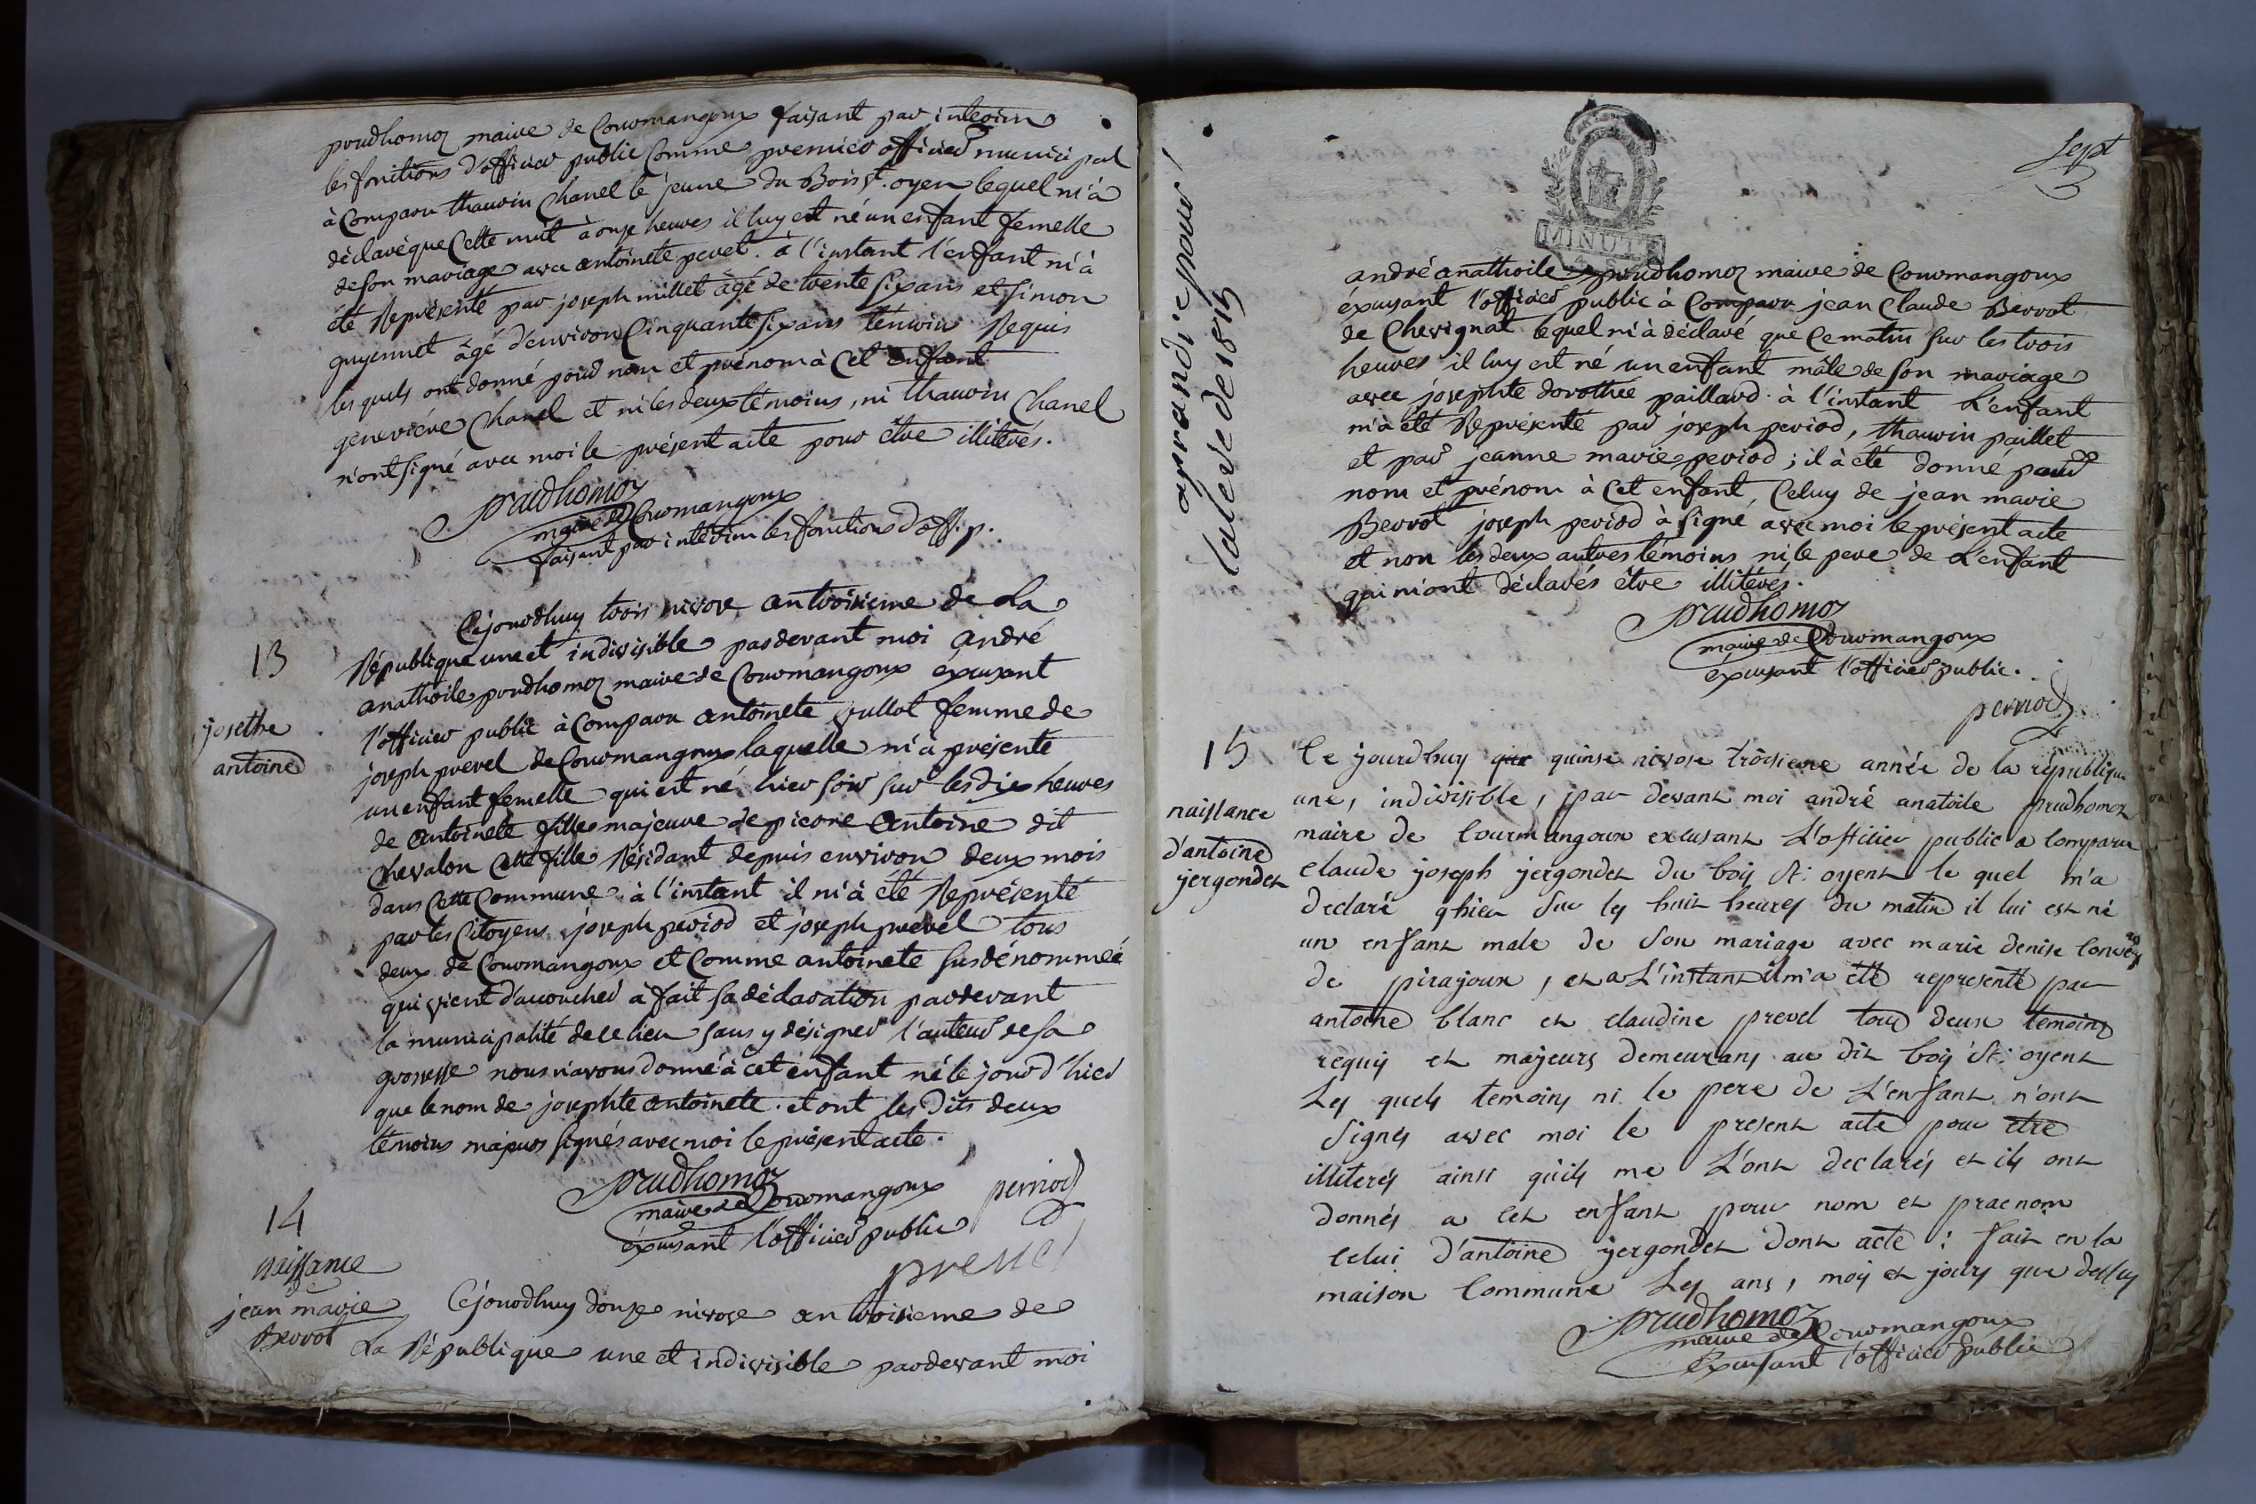 prudhomoz maire de Courmangoux faisant par interim
les fonctions d'officier public Comme premier officier municipal
à Comparu thauvin Chanel le jeune du Bois st. oyen lequel m'à
déclaré que Cette nuit à onze heures il luy est né un enfant femelle
de son mariage avec antoinete pevet. à l'instant l'enfant m'à
été Représenté par joseph millet âgé de trente six ans et simon
guyennet âgé d'environ Cinquante six ans témoins Requis
les quels ont donné pour nom et prénom à Cet enfant
geneviéve Chanel et ni les deux témoins, ni thauvin Chanel
n'ont signé avec moi le présent acte pour être illiterés.
prudhomoz
maire de Courmangoux
faisant par intérim les fonctions d'off. p.
13
josethe
antoine
Cejourdhuy trois nivose an troisieme de La
République une et indivisible pardevant moi andré
anathoile prudhomoz maire de Courmangoux excusant
l'officier public à Comparu antoinete vullot femme de
joseph prevel de Courmangoux laquelle m'à présenté
un enfant femelle qui est né hier soir sur les dix heures
de antoinete fille majeure de pierre antoine dit
chevalon Cette fille Résidant depuis environ deux mois
dans Cette Commune. à l'instant il m'à été Représenté
par les Citoyens joseph period et joseph prevel tous
deux de Courmangoux et Comme antoinete susdénommée
qui vient d'accoucher à fait sa déclaration pardevant
la municipalité de ce lieu sans y désigner l'auteur de sa
grossesse nous n'avons donné à cet enfant né le jour d'hier
que le nom de josephte antoinete. et ont les dits deux
témoins majeurs signés avec moi le présent acte.
prudhomoz
maire de Courmangoux
excusant l'officier public
perriod
prevel
14
naissance
jean marie
Berrot
Cejourdhuy douze nivose an troisieme de
La République une et indivisible pardevant moi
sept
MINUTE
arrandie pour
la lede de 1815
andré anathoile prudhomoz maire de Courmangoux
excusant l'officier public à Comparu jean Claude Berrot
de Chevignat lequel m'à déclaré que Ce matin sur les trois
heures il luy est né un enfant mâle de son mariage
avec josephte dorothée paillard. à l'instant L'enfant
m'à été Représenté par joseph period, thauvin paillet
et par jeanne marie period; il à été donné pour
nom et prénom à Cet enfant, Celuy de jean marie
Berrot joseph period à signé avec moi le présent acte
et non les deux autres témoins ni le pere de L'enfant
qui m'ont déclarés être illitérés.
prudhomoz
maire de Courmangoux
excusant l'officier public.
perriod
15
naissance
d'antoine
jergondet
Ce jourdhuy quinse nivose troisieme année de la republique
une, indivisible, par devant moi andré anatoile prudhomoz
maire de Courmangoux excusant L'officier public a comparu
claude joseph jergondet du bois St. oyent le quel m'a
declaré qhier sur les huit heures du matin il lui est né
un enfant male de son mariage avec marie denise
de pirajoux, et a L'instant il m'a été representé par
antoine blanc et claudine prevel tous deux temoins
requis et majeurs demeurans au dit bois St. oyent
Les quels temoins ni le pere de L'enfant n'ont
signes avec moi le present acte pour etre
illiterés ainsi qu'ils me L'ont declarés et ils ont
donnés a cet enfant pour nom et praenom
celui d'antoine jergondet dont acte: fait en la
maison Commune Les ans, mois et jours que dessus
prudhomoz
maire de Courmangoux
Excusant l'officier public